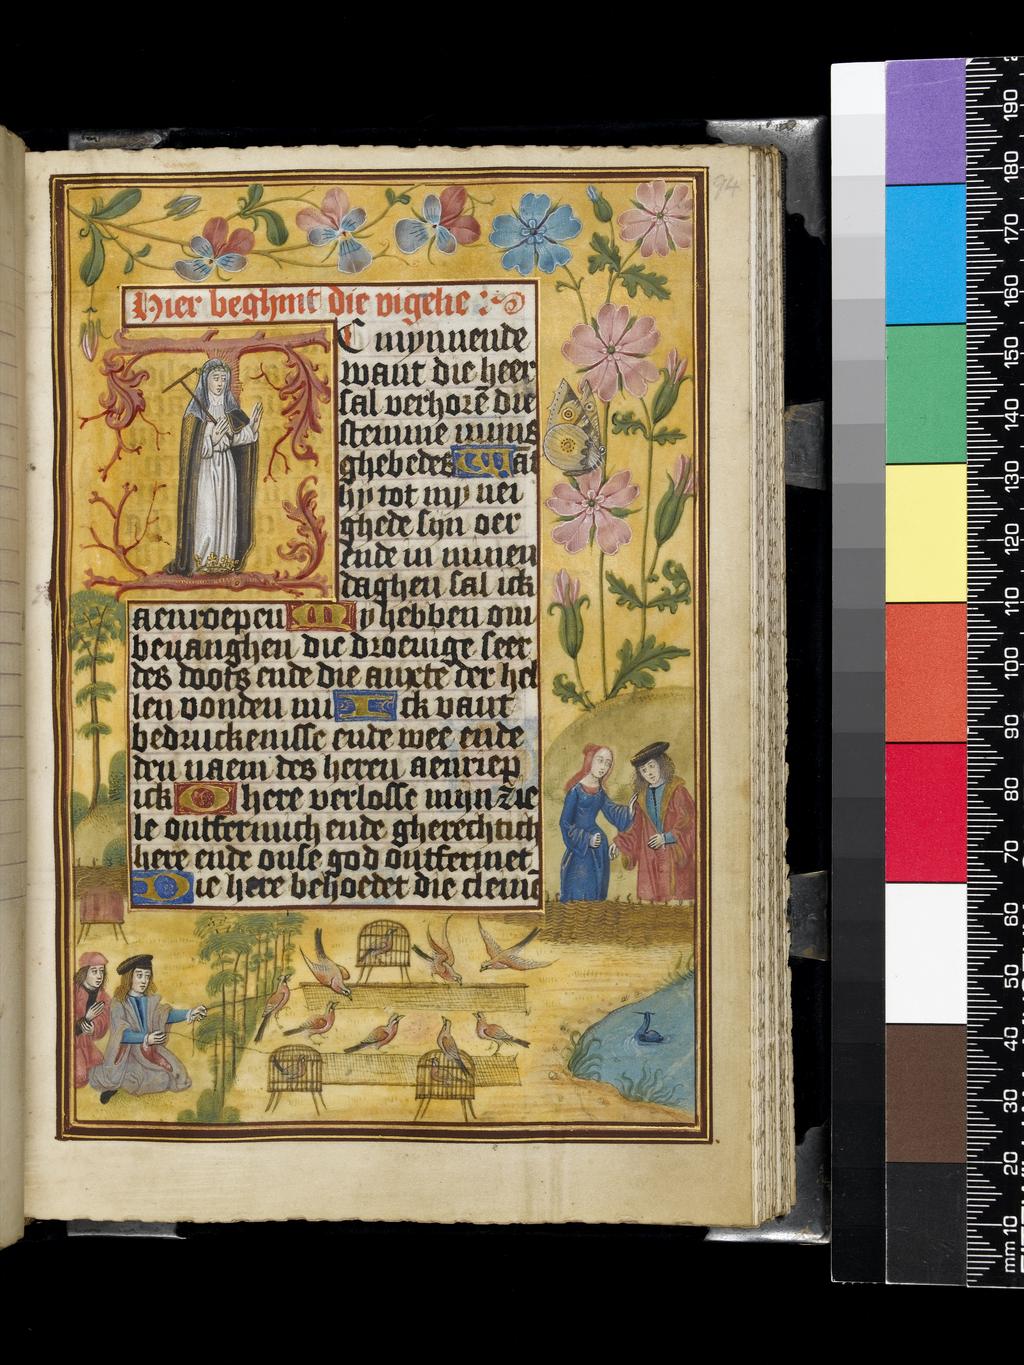 94
Hier beghint die vigelie
C mynnende
want die heer
sal verhorē die
stemme mijns
ghebedes Wāt
hy tot my nei
ghede sijn oer
ende in minen
daghen sal ick
aenroepen My hebben om
bevanghen die droevige seer
des doots ende die anxte der hel
len vonden mi Ick vant
bedruckenisse ende wee ende
den naem des heren aenriep
ick O here verlosse mijn zie
le ontfermich ende gherechtich
here ende onse god ontfermet
Die here behoedet die cleinē
mm 10 20 30 40 50 60 70 80 90 100 110 120 130 140 150 160 170 180 190